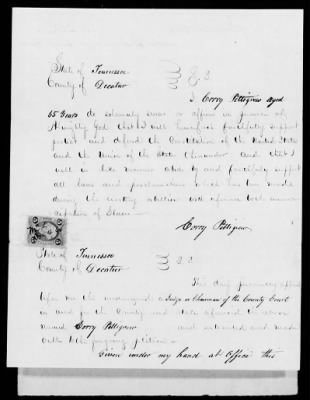 State of Tennessee
County of Decatur
I Corry Pettigrew aged
65 Years do solemnly swear or affirm in presence of
Almighty God that I will henceforth faithfully support
protect and defend the Constitution of the United States
and the Union of the States thereunder and that I
will in like manner abide by and faithfully support
all laws and proclamations which has been made
during the existing rebellion with reference to
Slaves
Corry Pettigrew
State of Tennessee
County of Decatur
This day personally
before me the undersigned a Judge or Chairman of the County Court
in and for the County and
named Corry Pettigrew and made
oath to the foregoing petition
Given under my hand at Office this